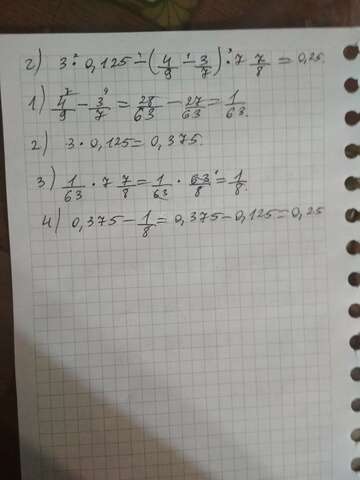 г) 3 · 0,125 - (4/9 - 3/7) · 7 7/8 = 0,25.
1) 4/9 - 3/7 = 28/63 - 27/63 = 1/63.
2) 3 · 0,125 = 0,375.
3) 1/63 · 7 7/8 = 1/63 · 63/8 = 1/8.
4) 0,375 - 1/8 = 0,375 - 0,125 = 0,25